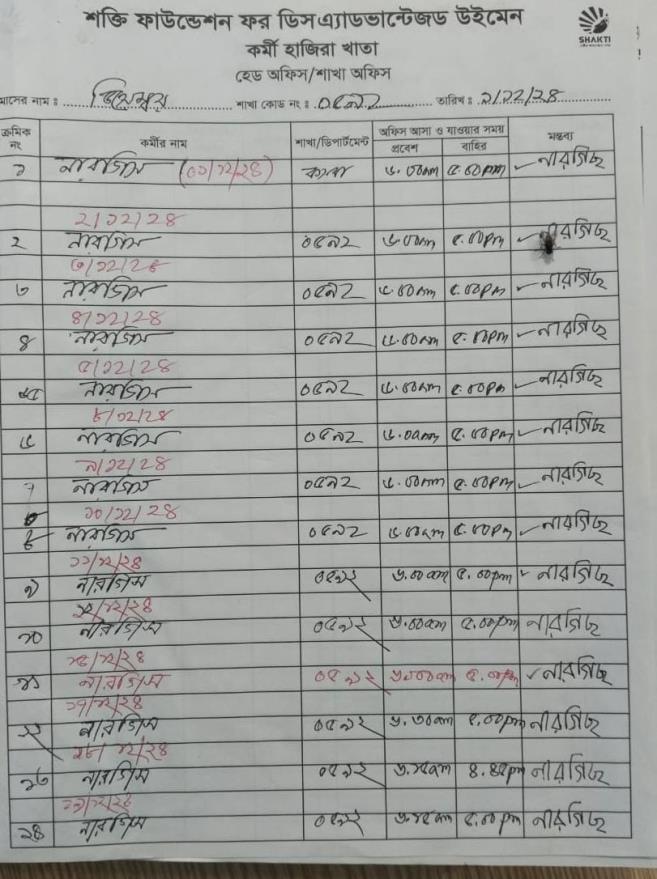 শক্তি ফাউন্ডেশন ফর ডিসএ্যাডভান্টেজড উইমেন
SHAKTI
কর্মী হাজিরা খাতা
হেড অফিস/শাখা অফিস
মাসের নাম : ডিসেম্বর শাখা কোড নং : ০৫৯২ তারিখ : ২/১২/২৪
ক্রমিক নং কর্মীর নাম শাখা/ডিপার্টমেন্ট অফিস আসা ও যাওয়ার সময় মন্তব্য
প্রবেশ বাহির
১ নারগিস (০১/১২/২৪) ৬.০০am ৫.০০pm নারগিছ
২/১২/২৪
২ নারগিস ০৫৯২ ৬.০০am ৫.০০pm নারগিছ
৩/১২/২৪
৩ নারগিস ০৫৯২ ৬.০০am ৫.০০pm নারগিছ
৪/১২/২৪
৪ নারগিস ০৫৯২ ৬.০০am ৫.০০pm নারগিছ
৫/১২/২৪
৫ নারগিস ০৫৯২ ৬.০০am ৫.০০pm নারগিছ
৮/১২/২৪
৬ নারগিস ০৫৯২ ৬.০০am ৫.০০pm নারগিছ
৯/১২/২৪
৭ নারগিস ০৫৯২ ৬.০০am ৫.০০pm নারগিছ
১০/১২/২৪
৮ নারগিস ০৫৯২ ৬.০০am ৫.০০pm নারগিছ
১১/১২/২৪
৯ নারগিস ০৫৯২ ৬.০০am ৫.০০pm নারগিছ
১২/১২/২৪
১০ নারগিস ০৫৯২ ৬.০০am ৫.০০pm নারগিছ
১৫/১২/২৪
১১ নারগিস ০৫৯২ ৬.০০am ৫.০০pm নারগিছ
১৭/১২/২৪
১২ নারগিস ০৫৯২ ৬.৩০am ৫.০০pm নারগিছ
১৮/১২/২৪
১৩ নারগিস ০৫৯২ ৬.১৫am ৪.৪৫pm নারগিছ
১৯/১২/২৪
১৪ নারগিস ০৫৯২ ৬.১৫am ৫.০০pm নারগিছ